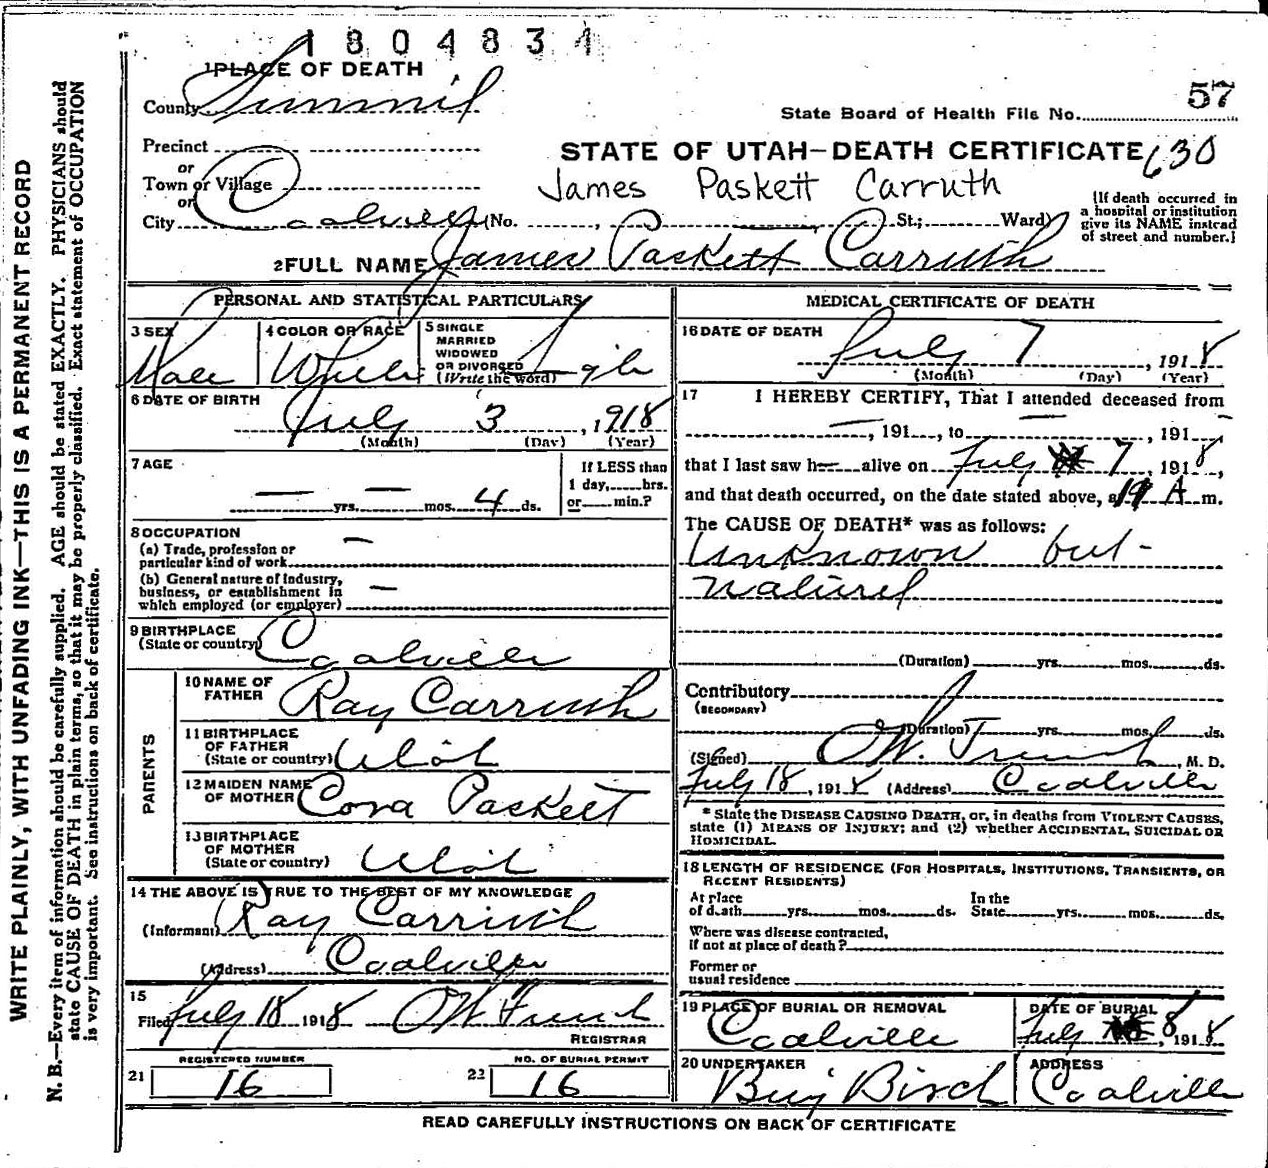 1804834
1 PLACE OF DEATH
County Summit
State Board of Health File No. 57
Precinct
or
STATE OF UTAH—DEATH CERTIFICATE 630
Town or Village
or
James Paskett Carruth
City Coalville (No. , St.; Ward)
[If death occurred in
a hospital or institution
give its NAME instead
of street and number.]
2 FULL NAME James Paskett Carruth
PERSONAL AND STATISTICAL PARTICULARS
3 SEX
Male
4 COLOR OR RACE
White
5 SINGLE
MARRIED
WIDOWED
OR DIVORCED
(Write the word)
Single
6 DATE OF BIRTH
July 3, 1918
(Month) (Day) (Year)
7 AGE
— yrs. — mos. 4 ds.
If LESS than
1 day, hrs.
or min.?
8 OCCUPATION
(a) Trade, profession or
particular kind of work —
(b) General nature of Industry,
business, or establishment in
which employed (or employer) —
9 BIRTHPLACE
(State or country) Coalville
PARENTS
10 NAME OF
FATHER Ray Carruth
11 BIRTHPLACE
OF FATHER
(State or country) Utah
12 MAIDEN NAME
OF MOTHER Cora Paskett
13 BIRTHPLACE
OF MOTHER
(State or country) Utah
14 THE ABOVE IS TRUE TO THE BEST OF MY KNOWLEDGE
(Informant) Ray Carruth
(Address) Coalville
15
Filed July 18 1918 OW French
REGISTRAR
REGISTERED NUMBER
21 16
NO. OF BURIAL PERMIT
22 16
MEDICAL CERTIFICATE OF DEATH
16 DATE OF DEATH
July 7, 1918
(Month) (Day) (Year)
17 I HEREBY CERTIFY, That I attended deceased from
—, 191 , to —, 191 —
that I last saw h alive on July 7, 1918,
and that death occurred, on the date stated above, at A m.
The CAUSE OF DEATH* was as follows:
Unknown but-
natural
(Duration) yrs. mos. ds.
Contributory
(SECONDARY)
(Duration) yrs. mos. ds.
(Signed) OW French, M. D.
July 18, 1918 (Address) Coalville
* State the DISEASE CAUSING DEATH, or, in deaths from VIOLENT CAUSES,
state (1) MEANS OF INJURY; and (2) whether ACCIDENTAL, SUICIDAL OR
HOMICIDAL.
18 LENGTH OF RESIDENCE (FOR HOSPITALS, INSTITUTIONS, TRANSIENTS, OR
RECENT RESIDENTS)
At place
of death yrs. mos. ds.
In the
State yrs. mos. ds.
Where was disease contracted,
if not at place of death?
Former or
usual residence
19 PLACE OF BURIAL OR REMOVAL
Coalville
DATE OF BURIAL
July 8, 1918
20 UNDERTAKER
Birch
ADDRESS
Coalville
READ CAREFULLY INSTRUCTIONS ON BACK OF CERTIFICATE
WRITE PLAINLY, WITH UNFADING INK—THIS IS A PERMANENT RECORD
N. B.—Every item of information should be carefully supplied. AGE should be stated EXACTLY. PHYSICIANS should
state CAUSE OF DEATH in plain terms, so that it may be properly classified. Exact statement of OCCUPATION
is very important. See instructions on back of certificate.